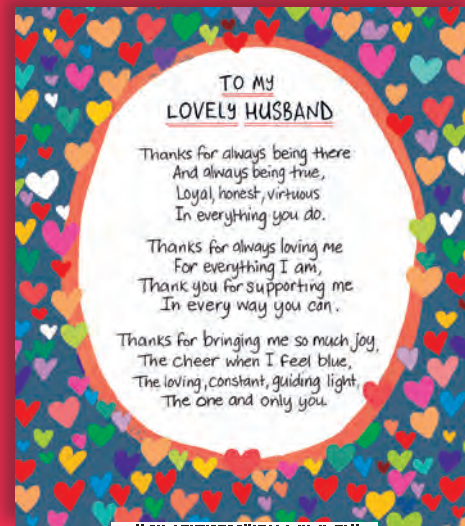 TO MY
LOVELY HUSBAND
Thanks for always being there
And always being true,
Loyal, honest, virtuous
In everything you do.
Thanks for always loving me
For everything I am,
Thank you for supporting me
In every way you can.
Thanks for bringing me so much joy,
The cheer when I feel blue,
The loving, constant, guiding light,
The one and only you.